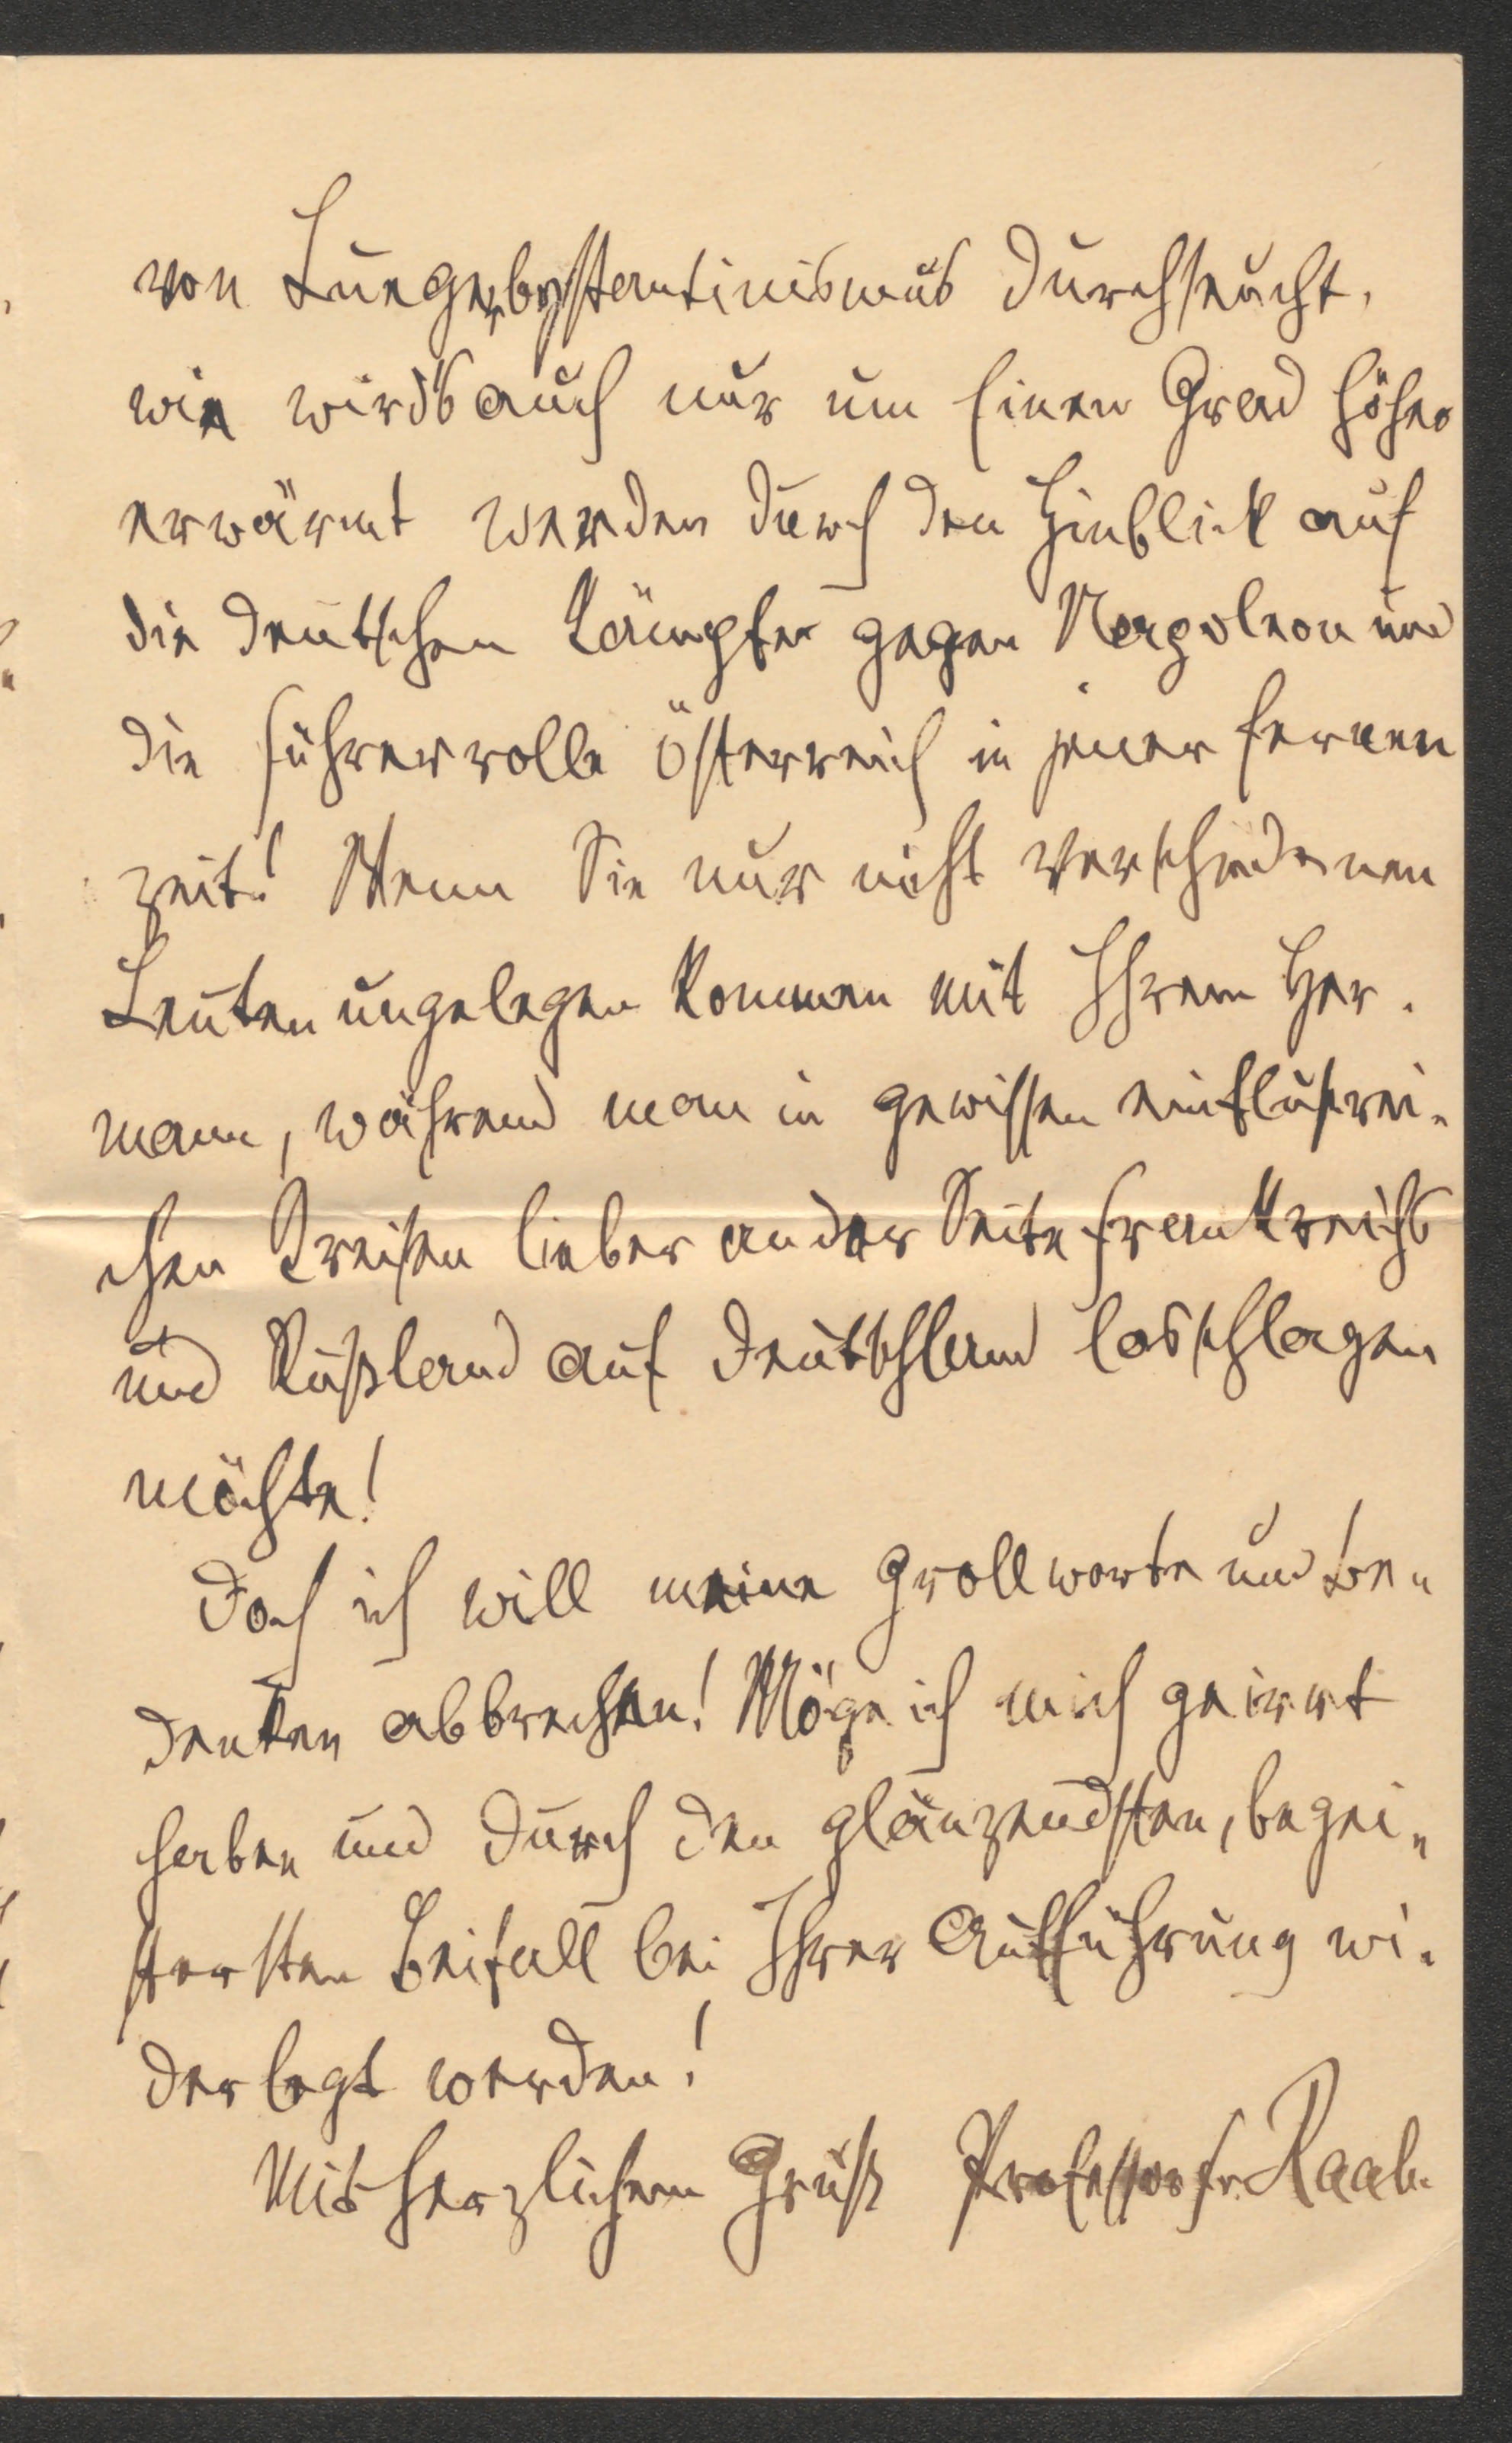 von Luegerbyzantinismus durchseucht,
wie wird's auch nur um Einen Grad höher
erwärmt werden durch den Hinblick auf
die deutschen Kämpfer gegen Napoleon und
die Führerrolle Österreich in jener fernen
Zeit! Wenn Sie nur nicht verschiedenen
Leuten ungelegen kommen mit Ihrem Her-
mann, während man in gewissen einflußrei-
chen Kreisen lieber an der Seite Frankreichs
und Rußland auf Deutschland losschlagen
möchte!
Doch ich will meine Grollworte und Be-
denken abbrechen! Möge ich mich geirrt
haben und durch den glänzendsten, begei-
stersten Beifall bei Ihrer Aufführung wi-
derlegt werden!
Mit herzlichem Gruß Professor Fr. Raab.